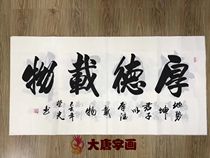 厚德載物
地勢坤
君子以
厚德
載物
大唐字画